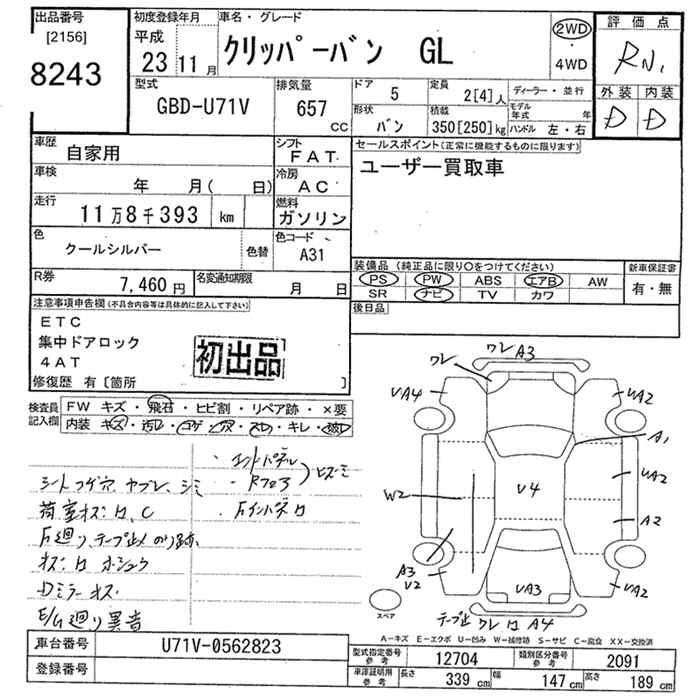 出品番号 [2156] 8243
初度登録年月 平成 23 11 月
車名・グレード クリッパーバン GL
2WD ・ 4WD
評価点 RN,
型式 GBD-U71V
排気量 657 CC
ドア 5
定員 2[4] 人
ディーラー・並行
形状 バン
積載 350[250] kg
モデル年式 年
ハンドル 左・右
外装 D 内装 D
車歴 自家用
シフト FAT
セールスポイント(正常に機能するものに限ります)
ユーザー買取車
車検 年 月( 日)
冷房 AC
走行 11万8千393 km
燃料 ガソリン
色 クールシルバー 色替
色コード A31
装備品(純正品に限り○をつけてください)
PS PW ABS エアB AW
SR ナビ TV カワ
新車保証書 有・無
R券 7,460 円
名変通知期限 月 日
後日品
注意事項申告欄(不具合内容等は具体的に記入して下さい)
ETC
集中ドアロック
4AT
初出品
修復歴 有〔箇所 〕
検査員記入欄 FW キズ・飛石・ヒビ割・リペア跡・×要
内装 キズ・汚れ・コゲ・穴・スレ・キレ・
シートコゲ穴、ヤブレ、シミ
荷室キズ凹、C
テープ止め のり跡
Dミラーキズ
E/G廻り異音
ワレ A3
ワレ
UA4
UA2
A1
UA2
W2
U4
A2
A3
U2
UA3
UA2
テープ止 ワレ 凹 A4
スペア
A−キズ E−エクボ U−凹み W−補修跡 S−サビ C−腐食 XX−交換済
車台番号 U71V-0562823
登録番号
型式指定番号 参考 12704
類別区分番号 参考 2091
車庫証明用 参考 長さ 339 cm 幅 147 cm 高さ 189 cm